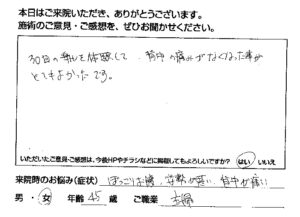 本日はご来院いただき、ありがとうございます。
施術のご意見・ご感想を、ぜひお聞かせください。
30日の 体験して 背中の痛みがなくなった事が
とてもよかったです。
いただいたご意見・ご感想は、今後HPやチラシなどに掲載してもよろしいですか? はい いいえ
来院時のお悩み(症状) ぽっこりお腹、姿勢が悪い、背中が痛い
男・女 年齢 45 歳 ご職業 主婦